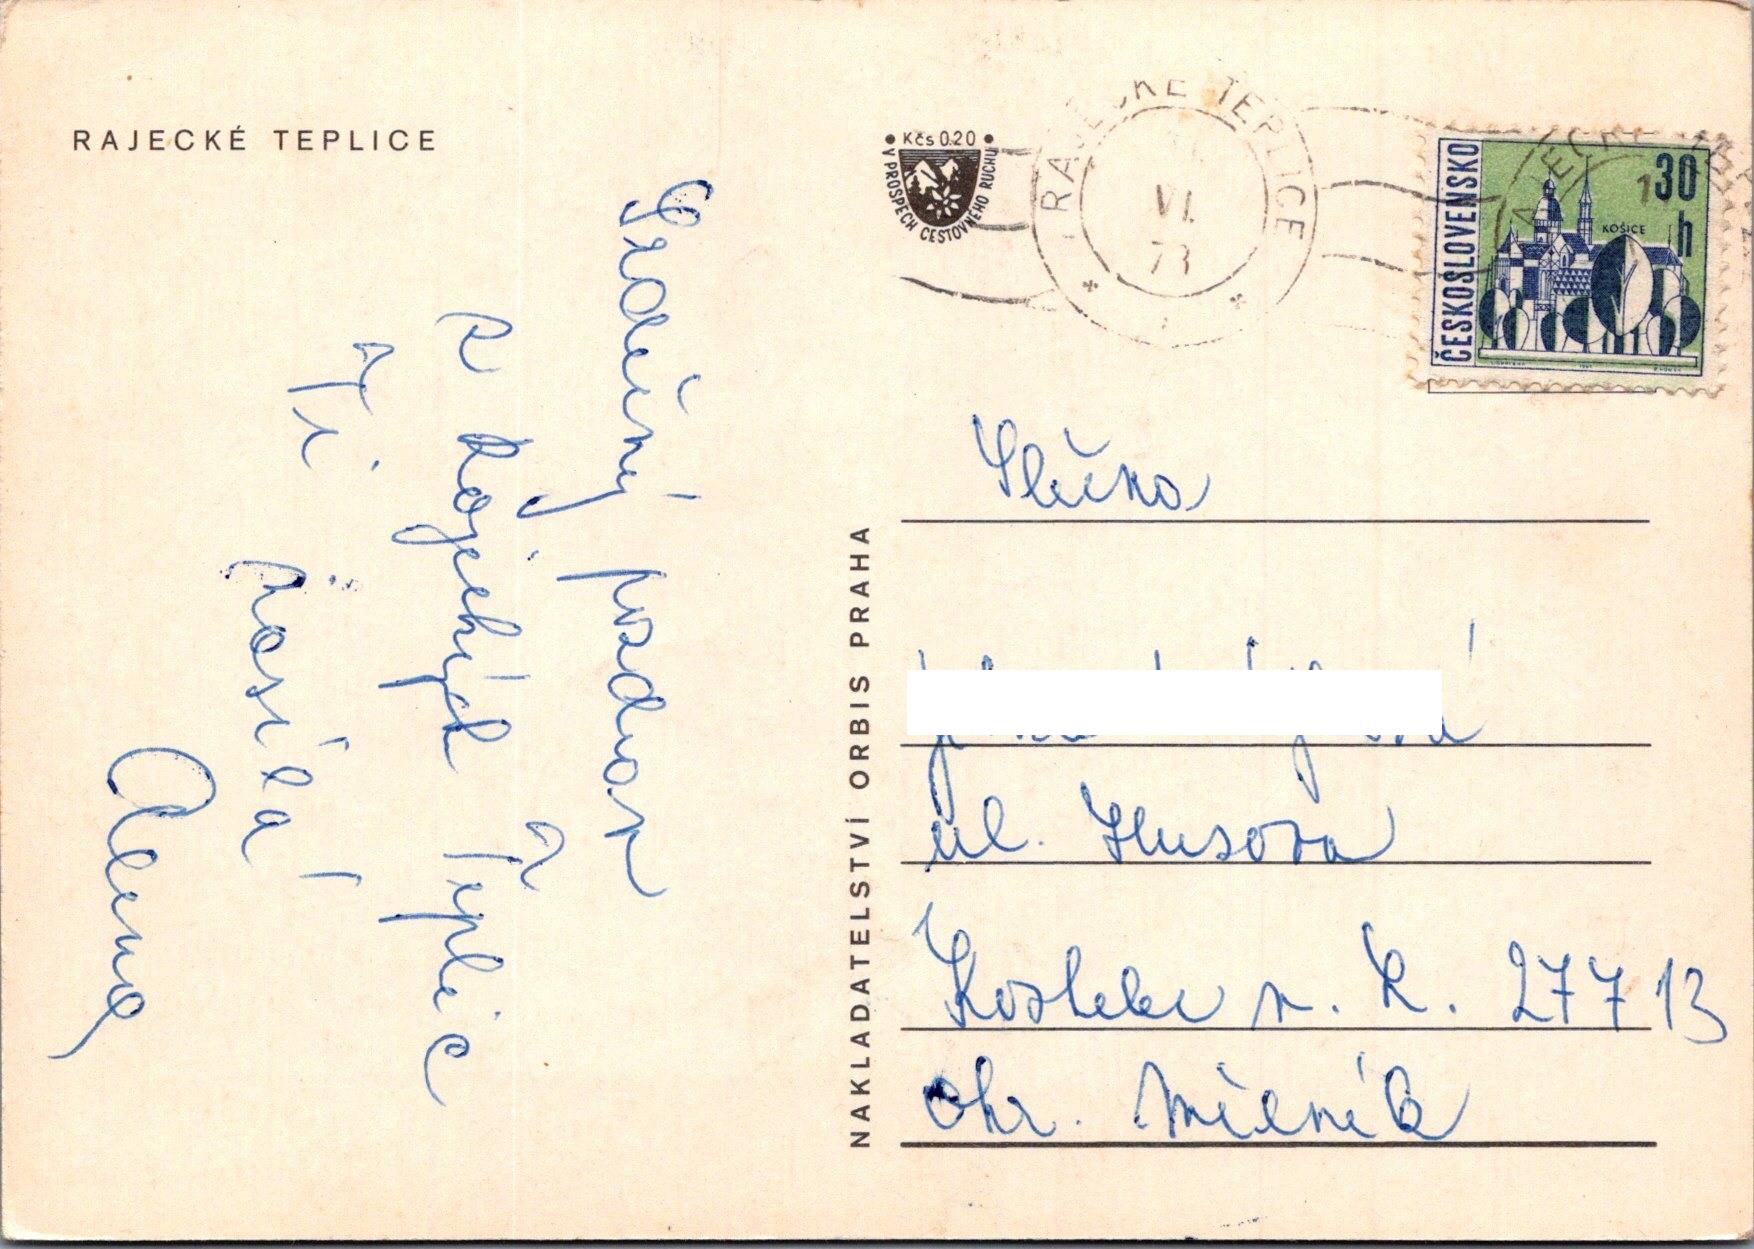 RAJECKÉ TEPLICE
Srdečný pozdrav
z Rajeckých Teplic
Ti
posílá
Alena
NAKLADATELSTVÍ ORBIS PRAHA
Kčs 0.20
V PROSPĚCH CESTOVNÉHO RUCHU
RAJECKÉ TEPLICE
VI.
73
ČESKOSLOVENSKO
30 h
KOŠICE
Slečna
ul. Husova
Kostelec n. L. 277 13
okr. Mělník